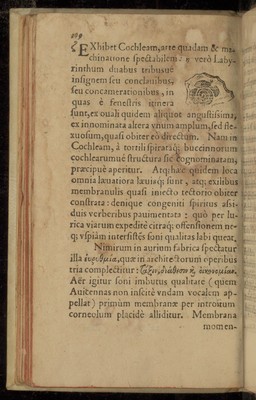 ζ EXhibet Cochleam, arte quadam & ma-
chinatione spectabilem: è verò Laby-
rinthum duabus tribusuè
insignem seu conclauibus,
seu concamerationibus, in
quas è fenestris itinera
sunt, ex ouali quidem aliquot angustissima,
ex innominata altera vnum amplum, sed fle-
xuosum, quasi obiter eò directum. Nam in
Cochleam, à tortili spiraq; buccinnorum
cochlearumuè structura sic cognominatam,
præcipuè aperitur. Atq; hæc quidem loca
omnia laxatiora laxisq; sunt, atq; exilibus
membranulis quasi iniecto tectorio obiter
constrata: denique congeniti spiritus assi-
duis verberibus pauimentata: quò per lu-
rica viarum expeditè citraq; offensionem ne-
q; vspiàm intersistés soni qualitas labi queat.
Nimirum in aurium fabrica spectatur
illa ἐυριθμία, quæ in architectorum operibus
tria complectitur: τάξιν, διάθεσιν κ̀ οἰκονομίαν.
Aër igitur soni imbutus qualitate (quem
Auicennas non inscitè vndam vocalem ap-
pellat) primùm membranæ per introitum
corneolum placidè alliditur. Membrana
momen-